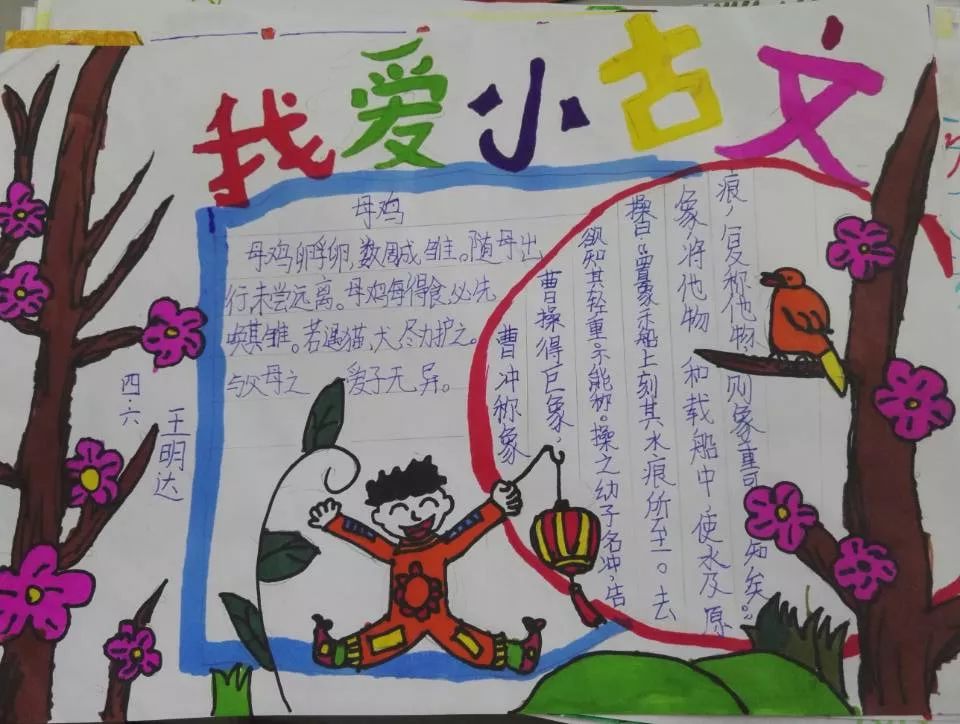 我爱小古文
母鸡
母鸡孵卵,数周成雏。随母出
行未尝远离。母鸡每得食,必先
唤其雏。若遇猫,犬尽力护之。
与父母之 爱子无异。
曹冲称象
曹操得巨象,
欲知其轻重,不能称。操之幼子名冲,告
操曰:“置象于船上刻其水痕所至一。去
象将他物 和载船中,使水及原
痕,复称他物,则象重可 知矣。”
四·六
王明达